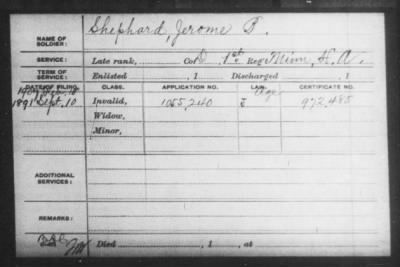 NAME OF SOLDIER: Shephard, Jerome B.
SERVICE: Late rank, Co. D 1st Reg Minn. H. A.
TERM OF SERVICE: Enlisted , 1 Discharged , 1
DATE OF FILING. CLASS. APPLICATION NO. LAW. CERTIFICATE NO.
Age
1891 Sept. 10 Invalid, 1055,240 972,485
Widow,
Minor,
ADDITIONAL SERVICES:
REMARKS:
Died , 1 , at